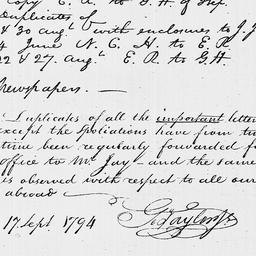 Copy E. R. to G. H. of
Duplicates of
& 30 augt with enclosures to J. J
4 June N. C. H. to E. R
22 & 27 augt E. R to G. H
Newspapers. —
Duplicates of all the important letter
except the Spoliations have from
time been regularly forwarded f
office to Mr Jay — and the same
is observed with respect to all our
abroad
Geo Taylor Jr
17 Sept 1794